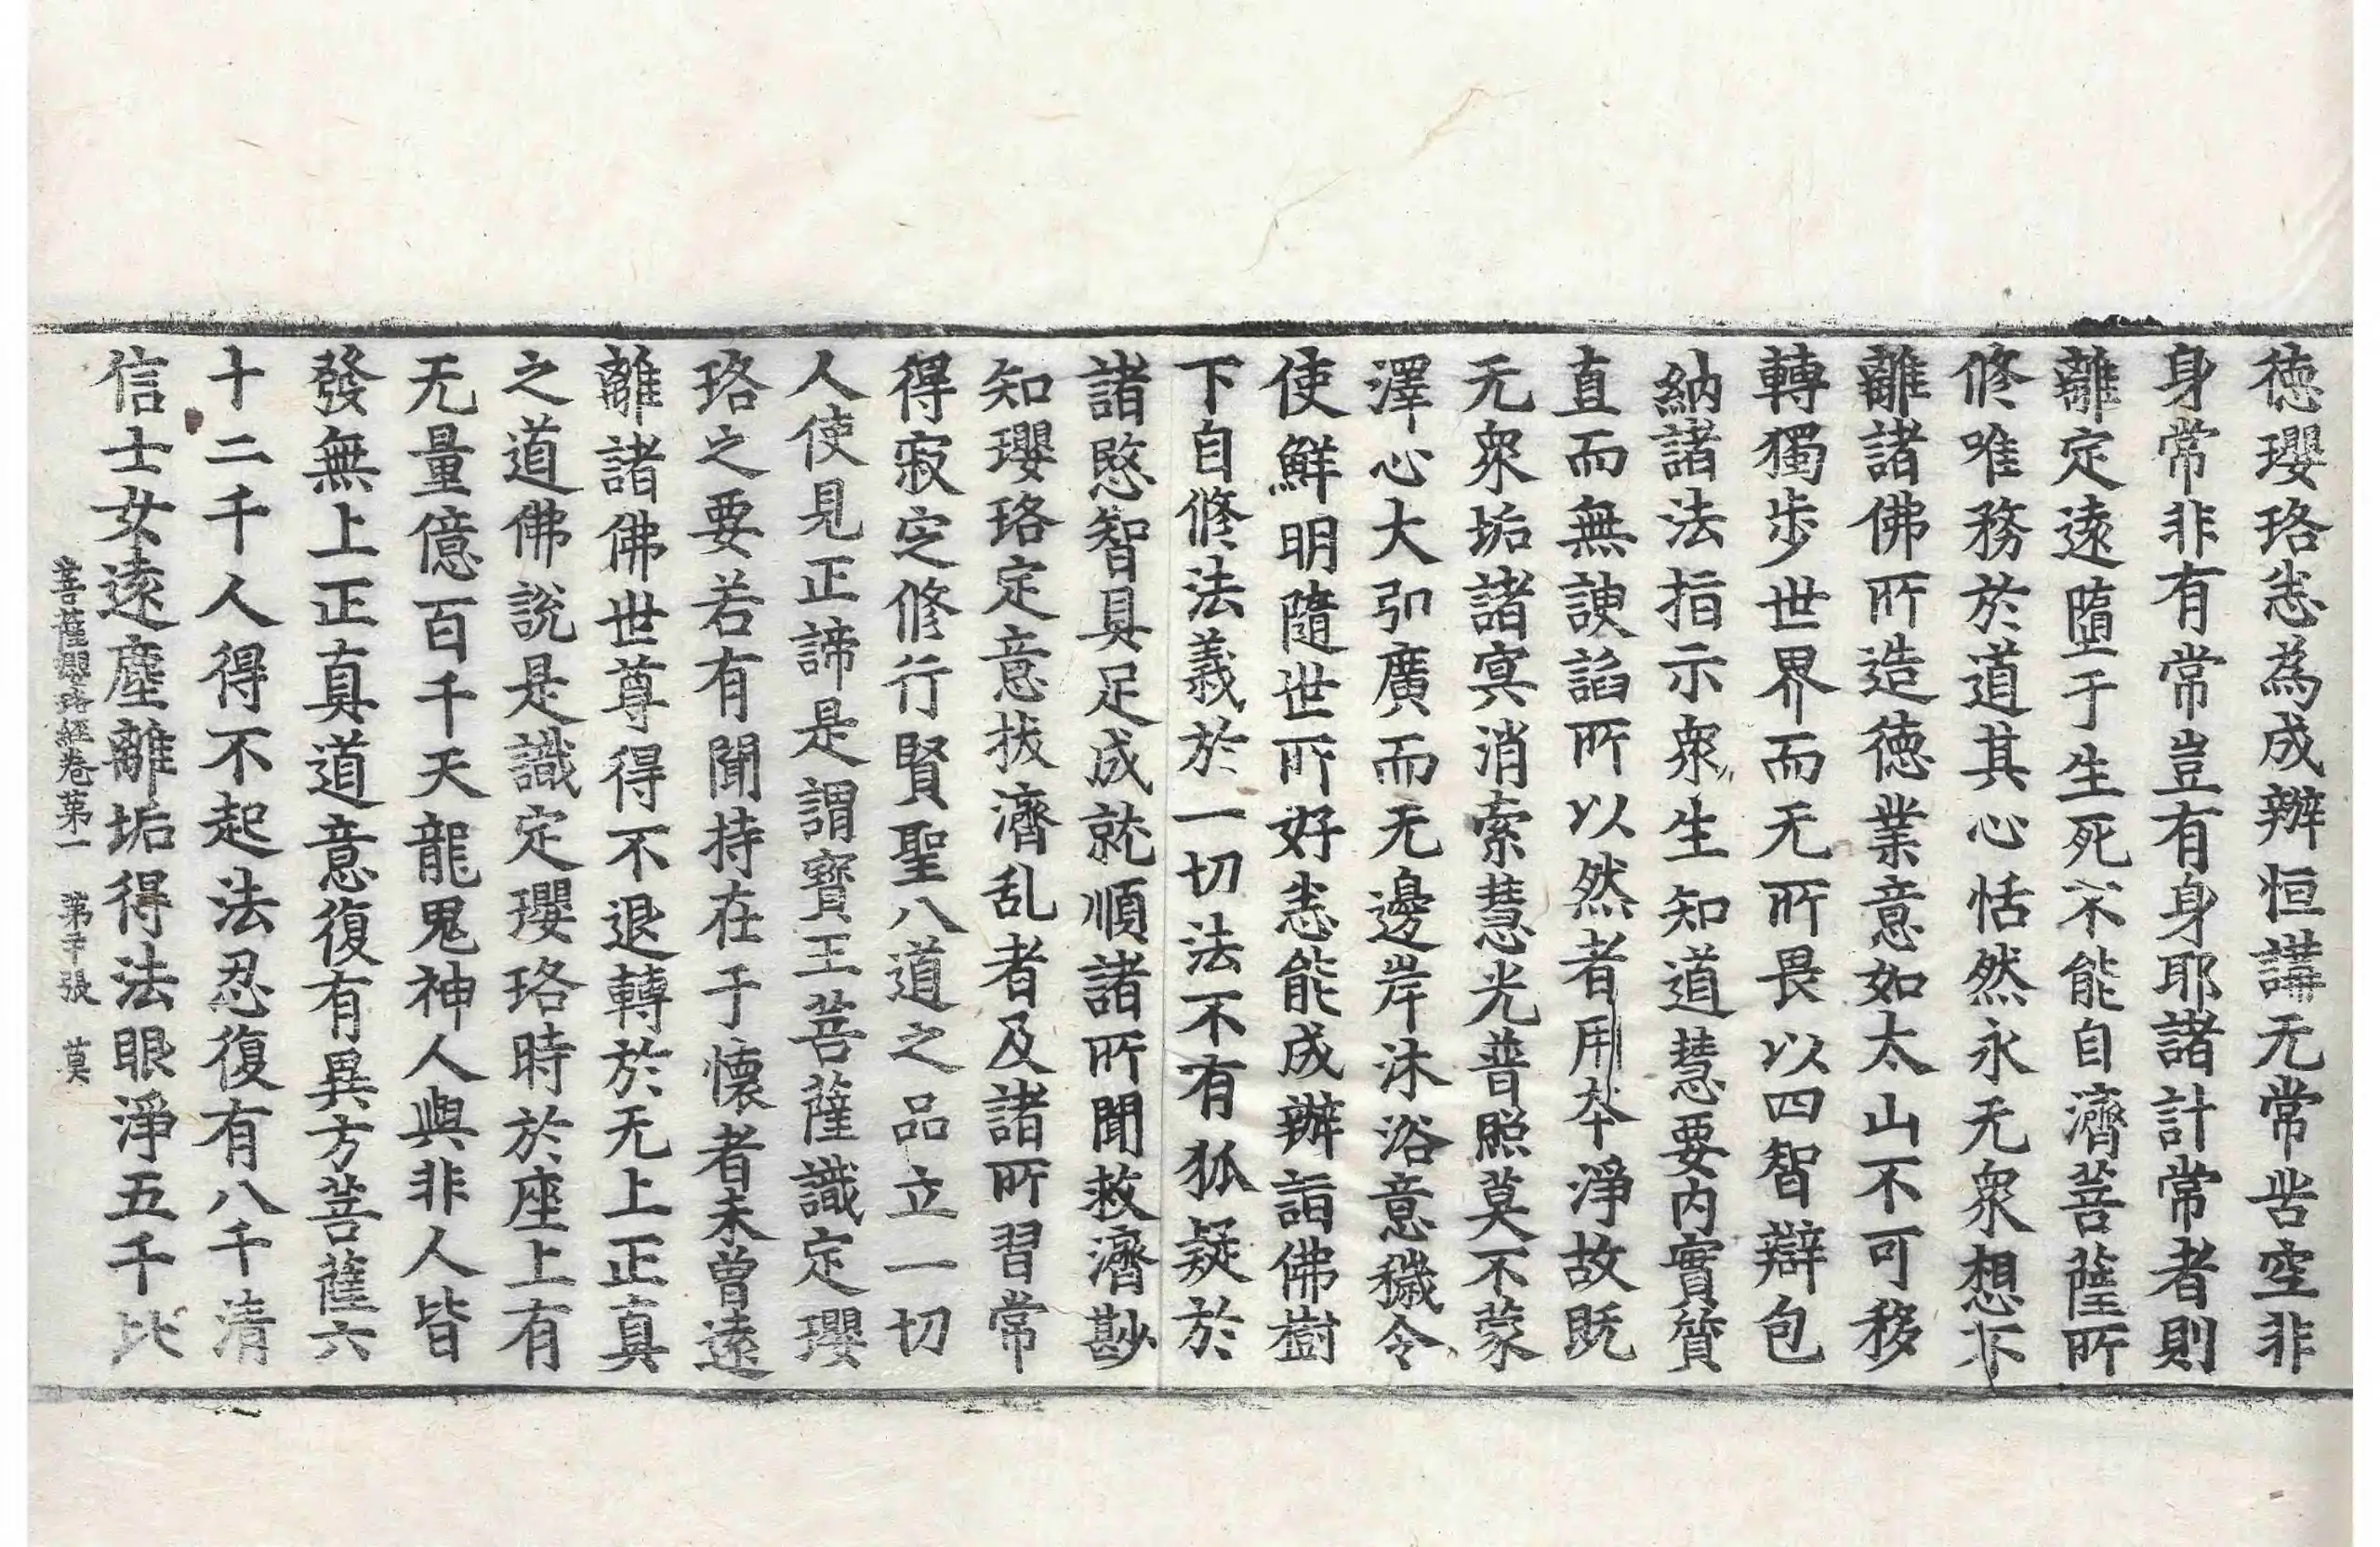 徳瓔珞悉為成辦恒講无常苦空非
身常非有常豈有身耶諸計常者則
離定遠墮于生死不能自濟菩薩所
修唯務於道其心恬然永无衆想不
離諸佛所造徳業意如太山不可移
轉獨步世界而无所畏以四智辯包
納諸法指示衆生知道慧要内實質
直而無諛諂所以然者用本淨故既
无衆垢諸冥消索慧光普照莫不蒙
澤心大弘廣而无邊岸沐浴意穢令
使鮮明隨世所好悉能成辦詣佛樹
下自修法義於一切法不有狐疑於
諸慜智具足成就順諸所聞救濟尠
知瓔珞定意拔濟乱者及諸所習常
得寂定修行賢聖八道之品立一切
人使見正諦是謂寶王菩薩識定瓔
珞之要若有聞持在于懷者未曾遠
離諸佛世尊得不退轉於无上正真
之道佛說是識定瓔珞時於座上有
无量億百千天龍鬼神人與非人皆
發無上正真道意復有異方菩薩六
十二千人得不起法忍復有八千清
信士女遠塵離垢得法眼淨五千比
菩薩瓔珞經卷第一 第 張 莫